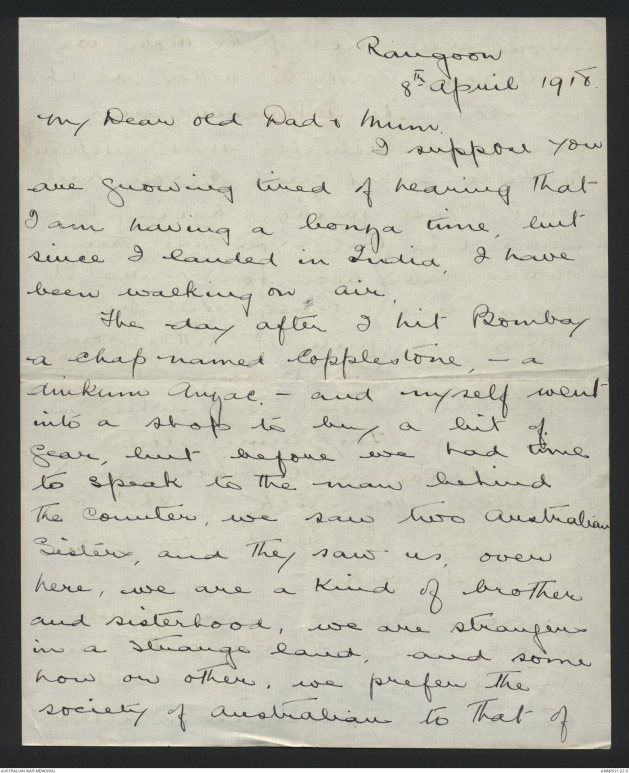 Rangoon
8th April 1918.
My Dear old Dad & Mum.
I suppose you
are growing tired of hearing that
I am having a bonza time, but
since I landed in India, I have
been walking on air.
The day after I hit Bombay
a chap named Copplestone, - a
dinkum Anzac, - and myself went
into a shop to buy a bit of
gear, but before we had time
to speak to the man behind
the counter, we saw two Australian
Sisters, and they saw us, over
here, we are a kind of brother
and sisterhood, we are strangers
in a strange land, and some
how or other, we prefer the
society of Australians to that of
AUSTRALIAN WAR MEMORIAL
AWM2021.22.3